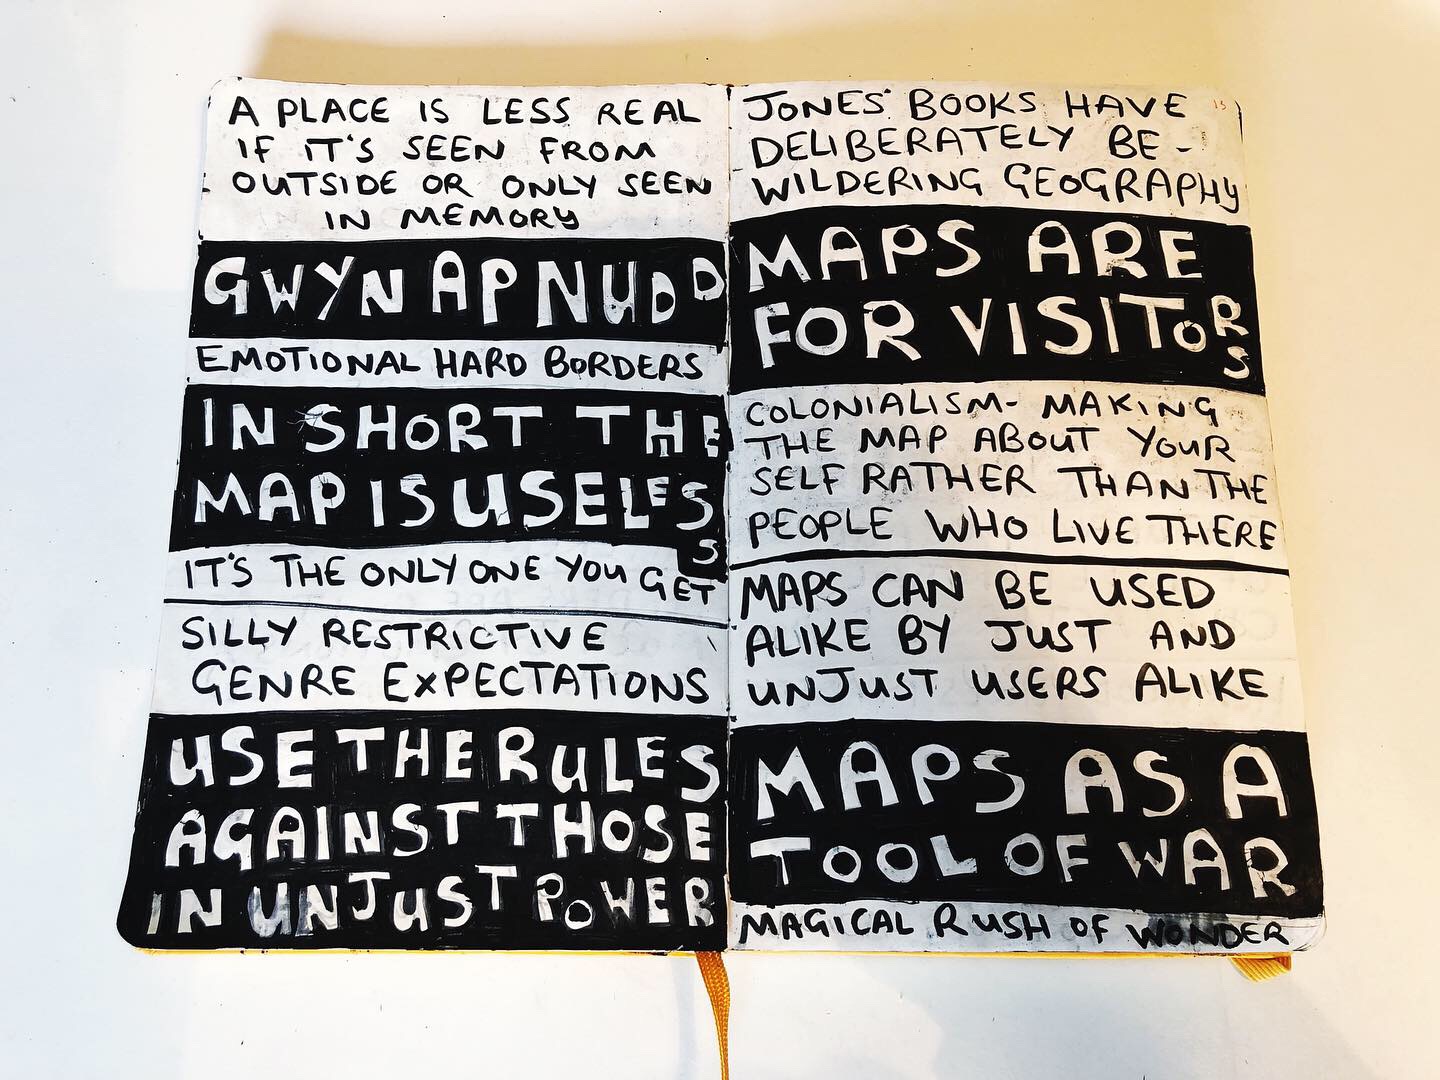 A PLACE IS LESS REAL
IF IT'S SEEN FROM
OUTSIDE OR ONLY SEEN
IN MEMORY
GWYN AP NUDD
EMOTIONAL HARD BORDERS
IN SHORT THE
MAP IS USELESS
IT'S THE ONLY ONE YOU GET
SILLY RESTRICTIVE
GENRE EXPECTATIONS
USE THE RULES
AGAINST THOSE
IN UNJUST POWER
JONES' BOOKS HAVE
DELIBERATELY BE-
WILDERING GEOGRAPHY
MAPS ARE
FOR VISITORS
COLONIALISM- MAKING
THE MAP ABOUT YOUR
SELF RATHER THAN THE
PEOPLE WHO LIVE THERE
MAPS CAN BE USED
ALIKE BY JUST AND
UNJUST USERS ALIKE
MAPS AS A
TOOL OF WAR
MAGICAL RUSH OF WONDER